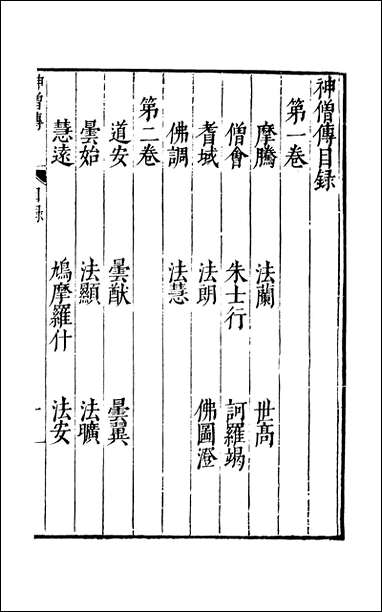 神僧傳目録
第一卷
摩騰 法蘭 世高
僧會 朱士行 訶羅竭
耆域 法朗 佛圖澄
佛調 法慧
第二卷
道安 曇猷 曇翼
曇始 法顯 法曠
慧遠 鳩摩羅什 法安
神僧傳 目録